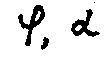 φ, α